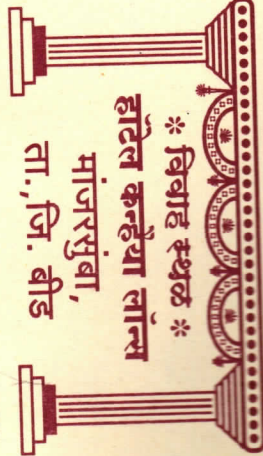 * विवाह स्थळ *
हॉटेल कन्हैया लॉन्स
मांजरसुंबा,
ता.,जि. बीड